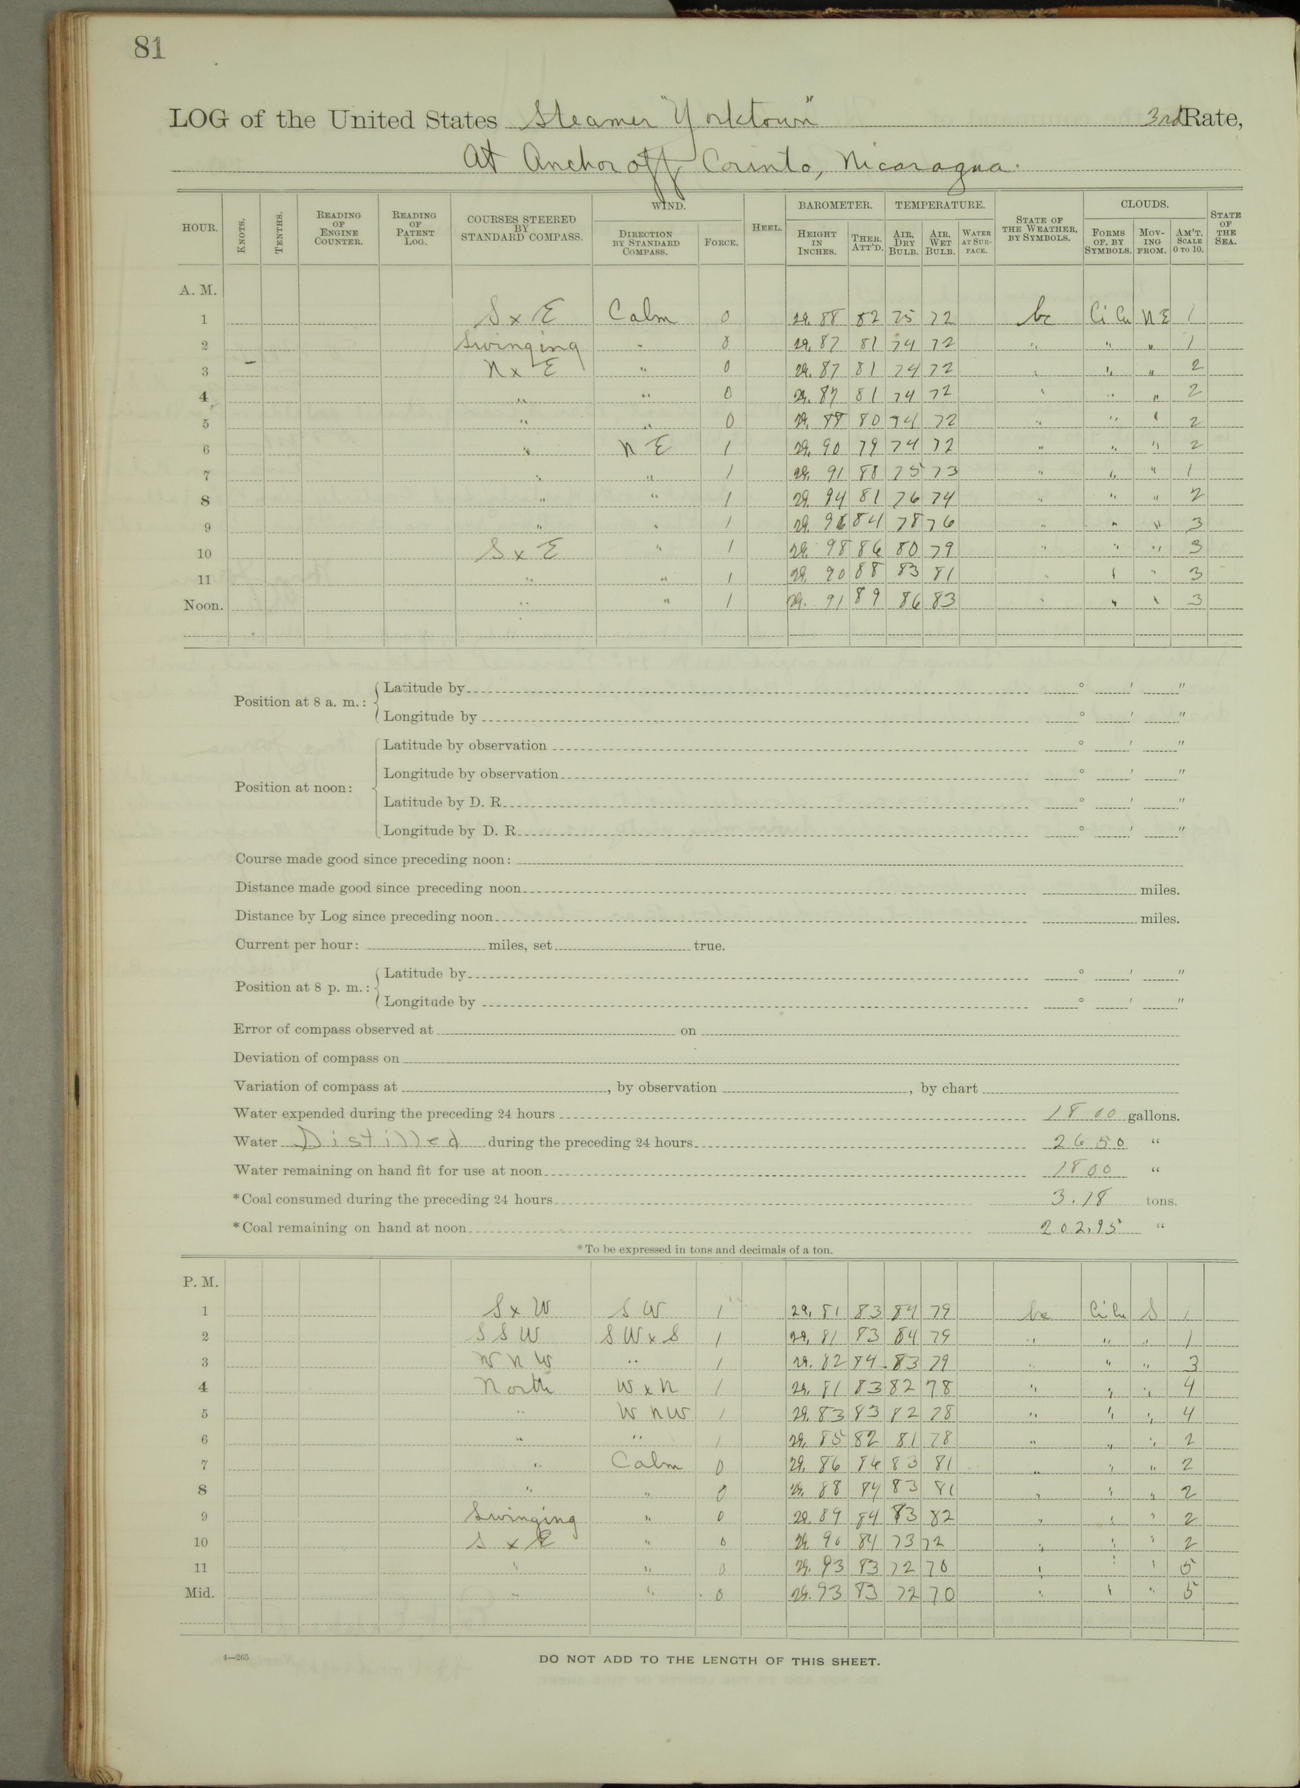 81
LOG of the United States Steamer "Yorktown" 3rd Rate,
At Anchor off Corinto, Nicaragua.
HOUR. KNOTS. TENTHS. READING OF ENGINE COUNTER. READING OF PATENT LOG. COURSES STEERED BY STANDARD COMPASS. WIND. DIRECTION BY STANDARD COMPASS. FORCE. HEEL. BAROMETER. HEIGHT IN INCHES. THER. ATT'D. TEMPERATURE. AIR, DRY BULB. AIR, WET BULB. WATER AT SURFACE. STATE OF THE WEATHER, BY SYMBOLS. CLOUDS. FORMS OF, BY SYMBOLS. MOVING FROM. AM'T. SCALE 0 TO 10. STATE OF THE SEA.
A. M.
1 S x E Calm 0 29.88 82 75 72 bc Ci Cu N E 1
2 Swinging " 0 29.87 81 74 72 " " " 1
3 N x E " 0 29.87 81 74 72 " " " 2
4 " " 0 29.87 81 74 72 " " " 2
5 " " 0 29.88 80 74 72 " " " 2
6 " N E 1 29.90 79 74 72 " " " 2
7 " " 1 29.91 80 75 73 " " " 1
8 " " 1 29.94 81 76 74 " " " 2
9 " " 1 29.96 84 78 76 " " " 3
10 S x E " 1 29.98 86 80 79 " " " 3
11 " " 1 29.90 88 83 81 " " " 3
Noon. " " 1 29.91 89 86 83 " " " 3
Position at 8 a. m.: Latitude by ° ' "
Longitude by ° ' "
Position at noon: Latitude by observation ° ' "
Longitude by observation ° ' "
Latitude by D. R. ° ' "
Longitude by D. R. ° ' "
Course made good since preceding noon:
Distance made good since preceding noon miles.
Distance by Log since preceding noon miles.
Current per hour: miles, set true.
Position at 8 p. m.: Latitude by ° ' "
Longitude by ° ' "
Error of compass observed at on
Deviation of compass on
Variation of compass at , by observation , by chart
Water expended during the preceding 24 hours 1800 gallons.
Water Distilled during the preceding 24 hours 2650 "
Water remaining on hand fit for use at noon 1800 "
*Coal consumed during the preceding 24 hours 3.18 tons.
*Coal remaining on hand at noon 202.95 "
*To be expressed in tons and decimals of a ton.
P. M.
1 S x W S W 1 29.81 83 84 79 bc Ci Cu S 1
2 S S W S W x S 1 29.81 83 84 79 " " " 1
3 W N W " 1 29.82 84 83 79 " " " 3
4 North W x N 1 29.81 83 82 78 " " " 4
5 " W N W 1 29.83 83 82 78 " " " 4
6 " " 1 29.85 82 81 78 " " " 2
7 " Calm 0 29.86 86 83 81 " " " 2
8 " " 0 29.88 84 83 81 " " " 2
9 Swinging " 0 29.89 84 83 82 " " " 2
10 S x E " 0 29.90 84 73 72 " " " 2
11 " " 0 29.93 83 72 70 " " " 5
Mid. " " 0 29.93 83 72 70 " " " 5
4—265
DO NOT ADD TO THE LENGTH OF THIS SHEET.